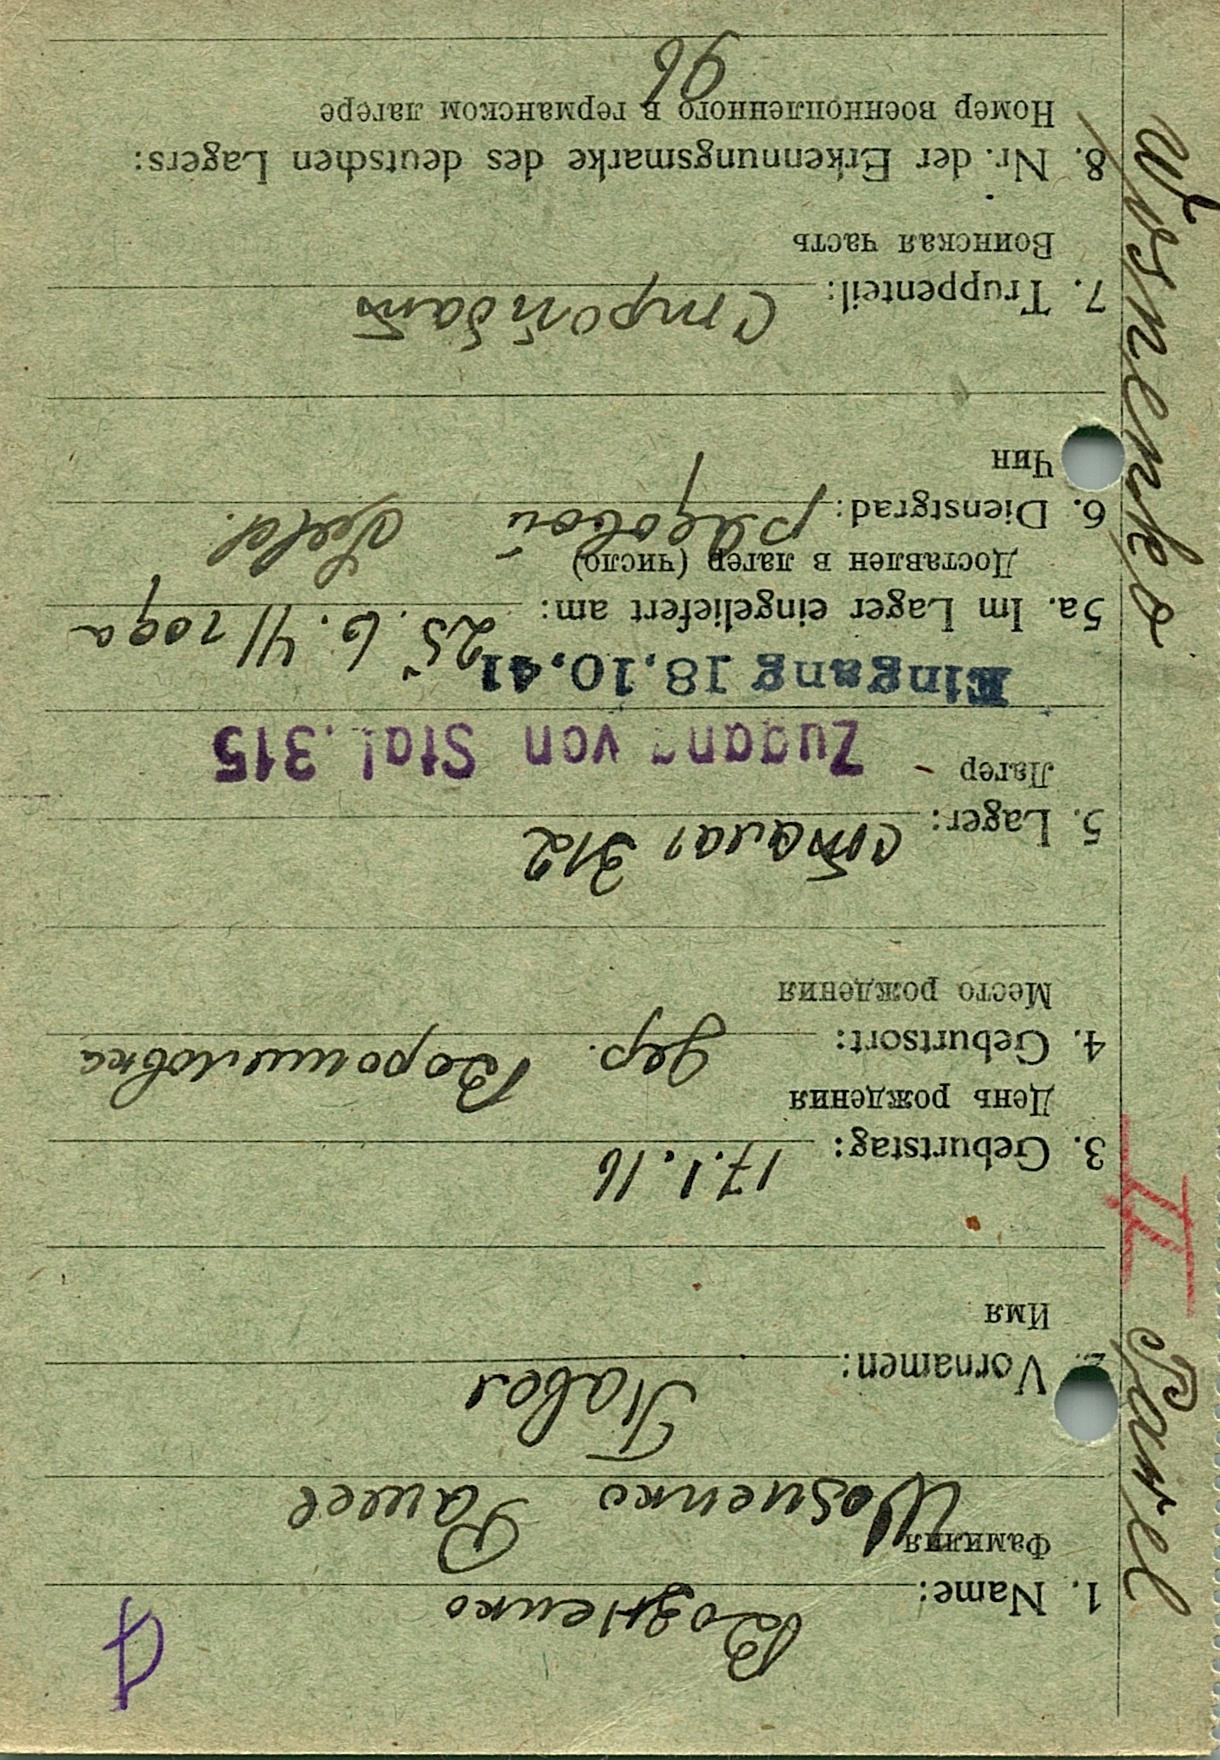 1. Name: Возненко
Фамилия
Wosnenko Pawel
2. Vornamen: Павел
Имя
3. Geburtstag: 17.1.16
День рождения
4. Geburtsort: дер. Ворошиловка
Место рождения
5. Lager: сталаг 312
Лагер
Zugang von Stal. 315
Eingang 18.10.41
5a. Im Lager eingeliefert am: 25.6.41 года
Доставлен в лагер (число)
6. Dienstgrad: рядовой
Чин
7. Truppenteil: Стройбат
Воинская часть
8. Nr. der Erkennungsmarke des deutschen Lagers:
Номер военнопленного в германском лагере
96
Wosnenko II Pawel